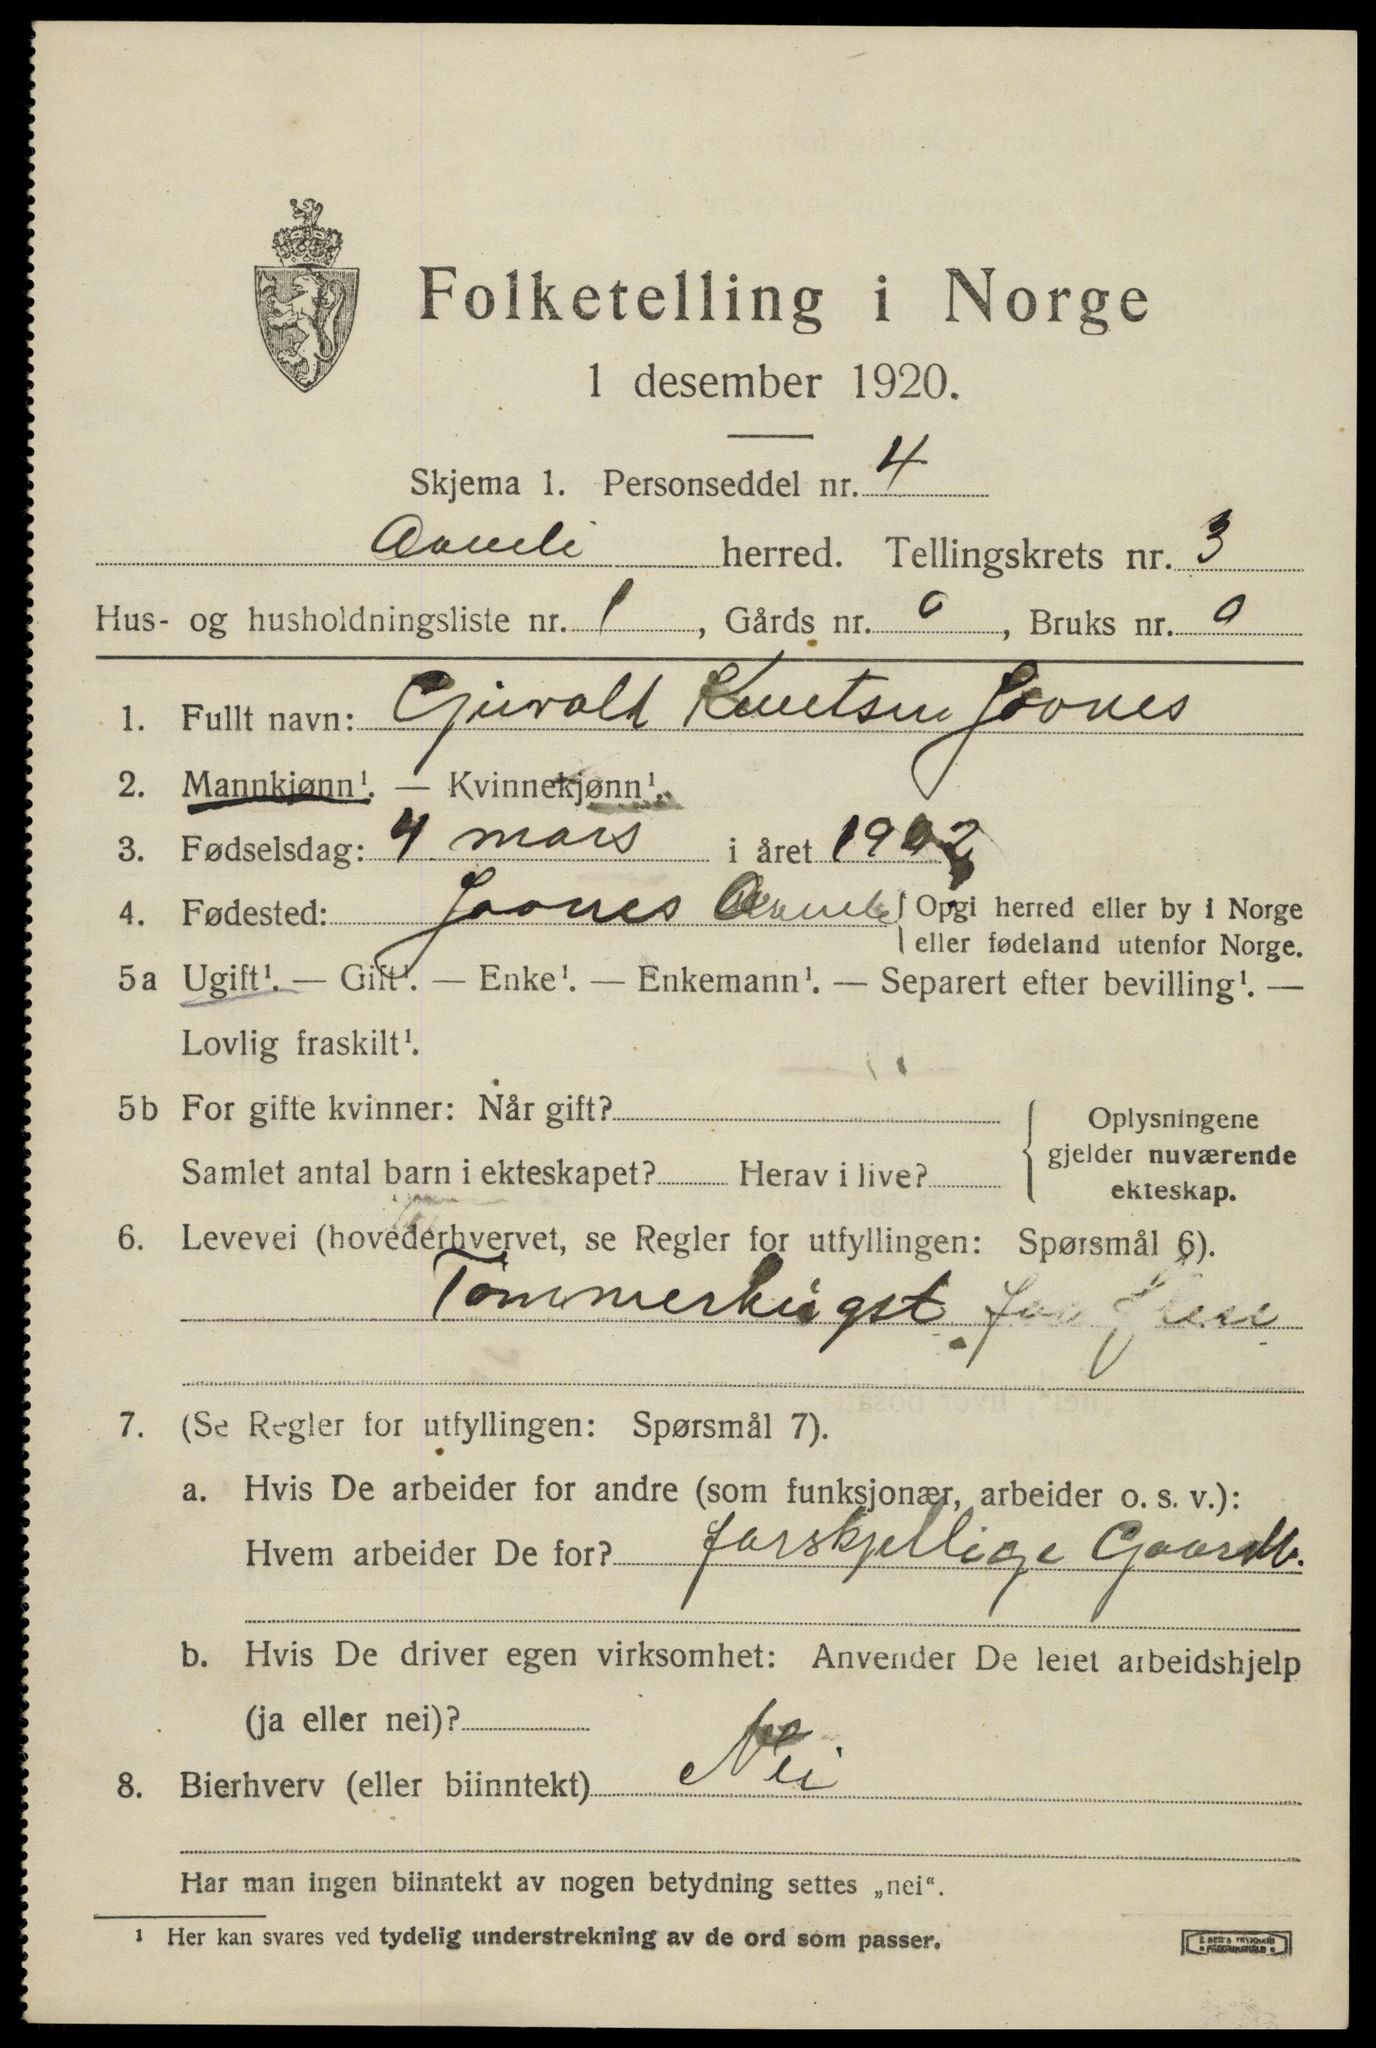 Folketelling i Norge
1 desember 1920.
Skjema 1. Personseddel nr. 4
Aamli herred. Tellingskrets nr. 3
Hus- og husholdningsliste nr. 1, Gårds nr. 0, Bruks nr. 0
1. Fullt navn: Gjuvald Knutsen Jovnes
2. Mannkjønn¹. — Kvinnekjønn¹.
3. Fødselsdag: 4 mars i året 1902
4. Fødested: Jovnes Aamli { Opgi herred eller by i Norge
eller fødeland utenfor Norge.
5a Ugift¹. — Gift¹. — Enke¹. — Enkemann¹. — Separert efter bevilling¹. —
Lovlig fraskilt¹.
5b For gifte kvinner: Når gift?
Samlet antal barn i ekteskapet? Herav i live?
Oplysningene
gjelder nuværende
ekteskap.
6. Levevei (hovederhvervet, se Regler for utfyllingen: Spørsmål 6).
Tømmerhugst for
7. (Se Regler for utfyllingen: Spørsmål 7).
a. Hvis De arbeider for andre (som funksjonær, arbeider o. s. v.):
Hvem arbeider De for? forskjellige Gaardb.
b. Hvis De driver egen virksomhet: Anvender De leiet arbeidshjelp
(ja eller nei)?
8. Bierhverv (eller biinntekt) Nei
Har man ingen biinntekt av nogen betydning settes „nei“.
¹ Her kan svares ved tydelig understrekning av de ord som passer.